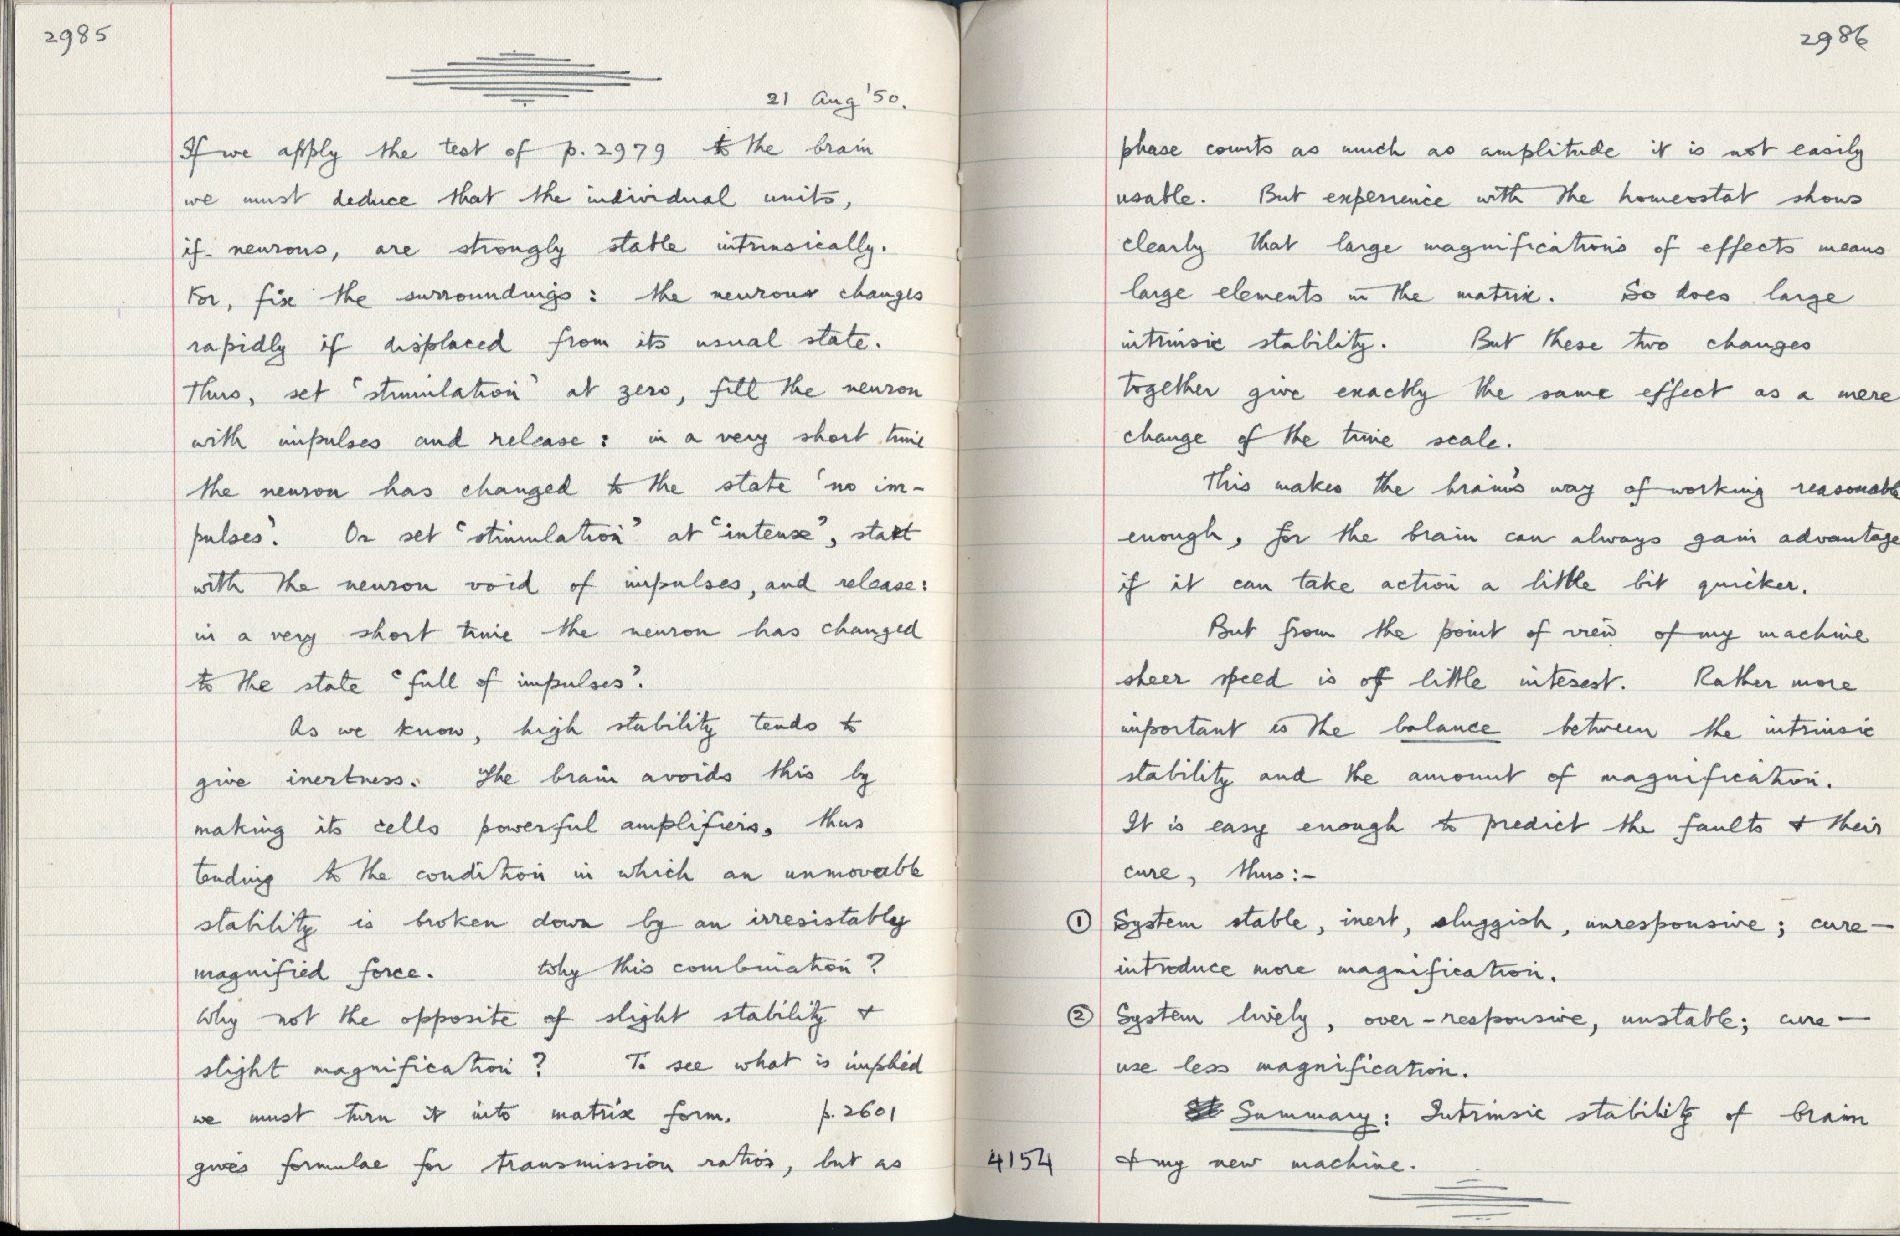 2985
21 Aug '50.
If we apply the test of p.2979 to the brain
we must deduce that the individual units,
if neurons, are strongly stable intrinsically.
For, fix the surroundings: the neuron changes
rapidly if displaced from its usual state.
Thus, set 'stimulation' at zero, fill the neuron
with impulses and release: in a very short time
the neuron has changed to the state 'no im-
pulses'. Or set "stimulation" at "intense", start
with the neuron void of impulses, and release:
in a very short time the neuron has changed
to the state "full of impulses".
As we know, high stability tends to
give inertness. The brain avoids this by
making its cells powerful amplifiers, thus
tending to the condition in which an unmovable
stability is broken down by an irresistably
magnified force. Why this combination?
Why not the opposite of slight stability &
slight magnification? To see what is implied
we must turn it into matrix form. p.2601
gives formulae for transmission ratios, but as
2986
phase counts as much as amplitude it is not easily
usable. But experience with the homeostat shows
clearly that large magnifications of effects means
large elements in the matrix. So does large
intrinsic stability. But these two changes
together give exactly the same effect as a mere
change of the time scale.
This makes the brain's way of working reasonable
enough, for the brain can always gain advantage
if it can take action a little bit quicker.
But from the point of view of my machine
sheer speed is of little interest. Rather more
important is the balance between the intrinsic
stability and the amount of magnification.
It is easy enough to predict the faults & their
cure, thus:-
① System stable, inert, sluggish, unresponsive; cure —
introduce more magnification.
② System lively, over-responsive, unstable; cure —
use less magnification.
Summary: Intrinsic stability of brain
4154 & my new machine.